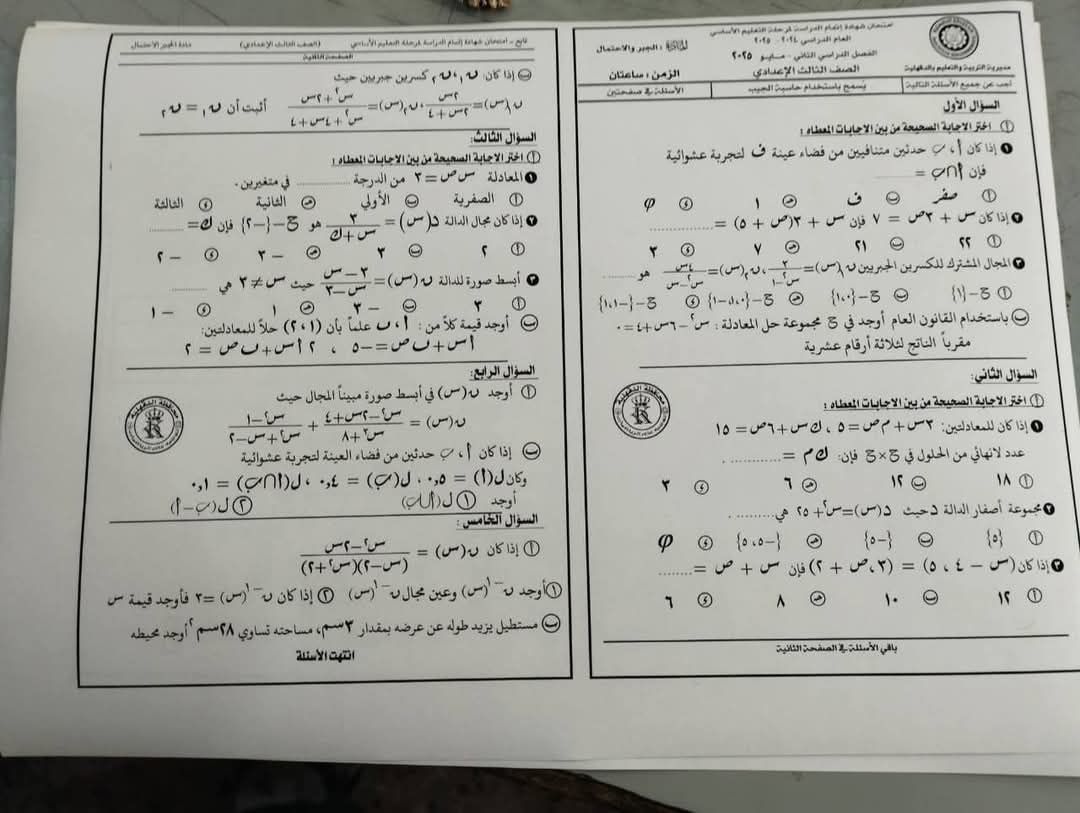 امتحان شهادة إتمام الدراسة لمرحلة التعليم الأساسي
العام الدراسي ٢٠٢٤ - ٢٠٢٥
الفصل الدراسي الثاني - مايو ٢٠٢٥
المادة: الجبر والاحتمال
مديرية التربية والتعليم بالدقهلية
الصف الثالث الإعدادي
الزمن: ساعتان
أجب عن جميع الأسئلة التالية
يُسمح باستخدام حاسبة الجيب
الأسئلة في صفحتين
السؤال الأول
أ اختر الاجابة الصحيحة من بين الاجابات المعطاه :
١ إذا كان أ ، ب حدثين متنافيين من فضاء عينة ف لتجربة عشوائية
فإن أ∩ب = ............
أ صفر ب ف ج ١ د φ
٢ إذا كان س + ٣ص = ٧ فإن س + ٣(ص + ٥) = ............
أ ٢٢ ب ٢١ ج ٧ د ٣
٣ المجال المشترك للكسرين الجبريين ن١(س)= ٢/(س٢-١) ، ن٢(س)= ٤س/(س٢-س) هو ........
أ ح-{١} ب ح-{١،٠} ج ح-{١،٠،-١} د ح-{١،-١}
ب باستخدام القانون العام أوجد في ح مجموعة حل المعادلة : س٢-٦س+٤=٠
مقرباً الناتج لثلاثة أرقام عشرية
السؤال الثاني:
أ اختر الاجابة الصحيحة من بين الاجابات المعطاه :
١ إذا كان للمعادلتين: ٣س+م ص=٥ ، ك س+٦ص=١٥
عدد لانهائي من الحلول في ح×ح فإن: ك م = ............
أ ١٨ ب ١٢ ج ٦ د ٣
٢ مجموعة أصفار الدالة د حيث د(س)=س٢+٢٥ هي ............
أ {٥} ب {-٥} ج {٥،-٥} د φ
٣ إذا كان (س - ٤ ، ٥) = (٣، ص + ٢) فإن س + ص = ........
أ ١٢ ب ١٠ ج ٨ د ٦
باقي الأسئلة في الصفحة الثانية
تابع - امتحان شهادة إتمام الدراسة لمرحلة التعليم الأساسي (الصف الثالث الإعدادي) مادة الجبر الاحتمال
الصفحة الثانية
ب إذا كان: ن١، ن٢ كسرين جبريين حيث
ن١(س)= ٢س/(٢س+٤) ، ن٢(س)= (س٢+٢س)/(س٢+٤س+٤) أثبت أن ن١ = ن٢
السؤال الثالث:
أ اختر الاجابة الصحيحة من بين الاجابات المعطاه :
١ المعادلة س ص = ٢ من الدرجة ............ في متغيرين.
أ الصفرية ب الأولي ج الثانية د الثالثة
٢ إذا كان مجال الدالة د(س)= ٣/(س+ك) هو ح-{-٢} فإن ك= ........
أ ٢ ب ٣ ج -٣ د -٢
٣ أبسط صورة للدالة ن(س)= (٣-س)/(س-٣) حيث س≠٣ هي ........
أ ٣ ب -٣ ج ١ د -١
ب أوجد قيمة كلاً من : أ ، ب علماً بأن (٢،١) حلاً للمعادلتين:
أس+ب ص=-٥ ، ٢أس+ب ص = ٢
السؤال الرابع:
أ أوجد ن(س) في أبسط صورة مبيناً المجال حيث
ن(س) = (س٢-٢س+٤)/(س٣+٨) + (س٢-١)/(س٢+س-٢)
ب إذا كان أ ، ب حدثين من فضاء العينة لتجربة عشوائية
وكان ل(أ) = ٠,٥ ، ل(ب) = ٠,٤ ، ل(أ∩ب) = ٠,١
أوجد ١ ل(أ∪ب) ٢ ل(ب-أ)
محافظة الدقهلية
السؤال الخامس :
أ إذا كان ن(س) = (س٢-٢س)/((س-٢)(س٢+٢))
١ أوجد ن-١(س) وعين مجال ن-١(س) ٢ إذا كان ن-١(س) =٣ فأوجد قيمة س
ب مستطيل يزيد طوله عن عرضه بمقدار ٣سم، مساحته تساوي ٢٨سم٢ أوجد محيطه
انتهت الأسئلة